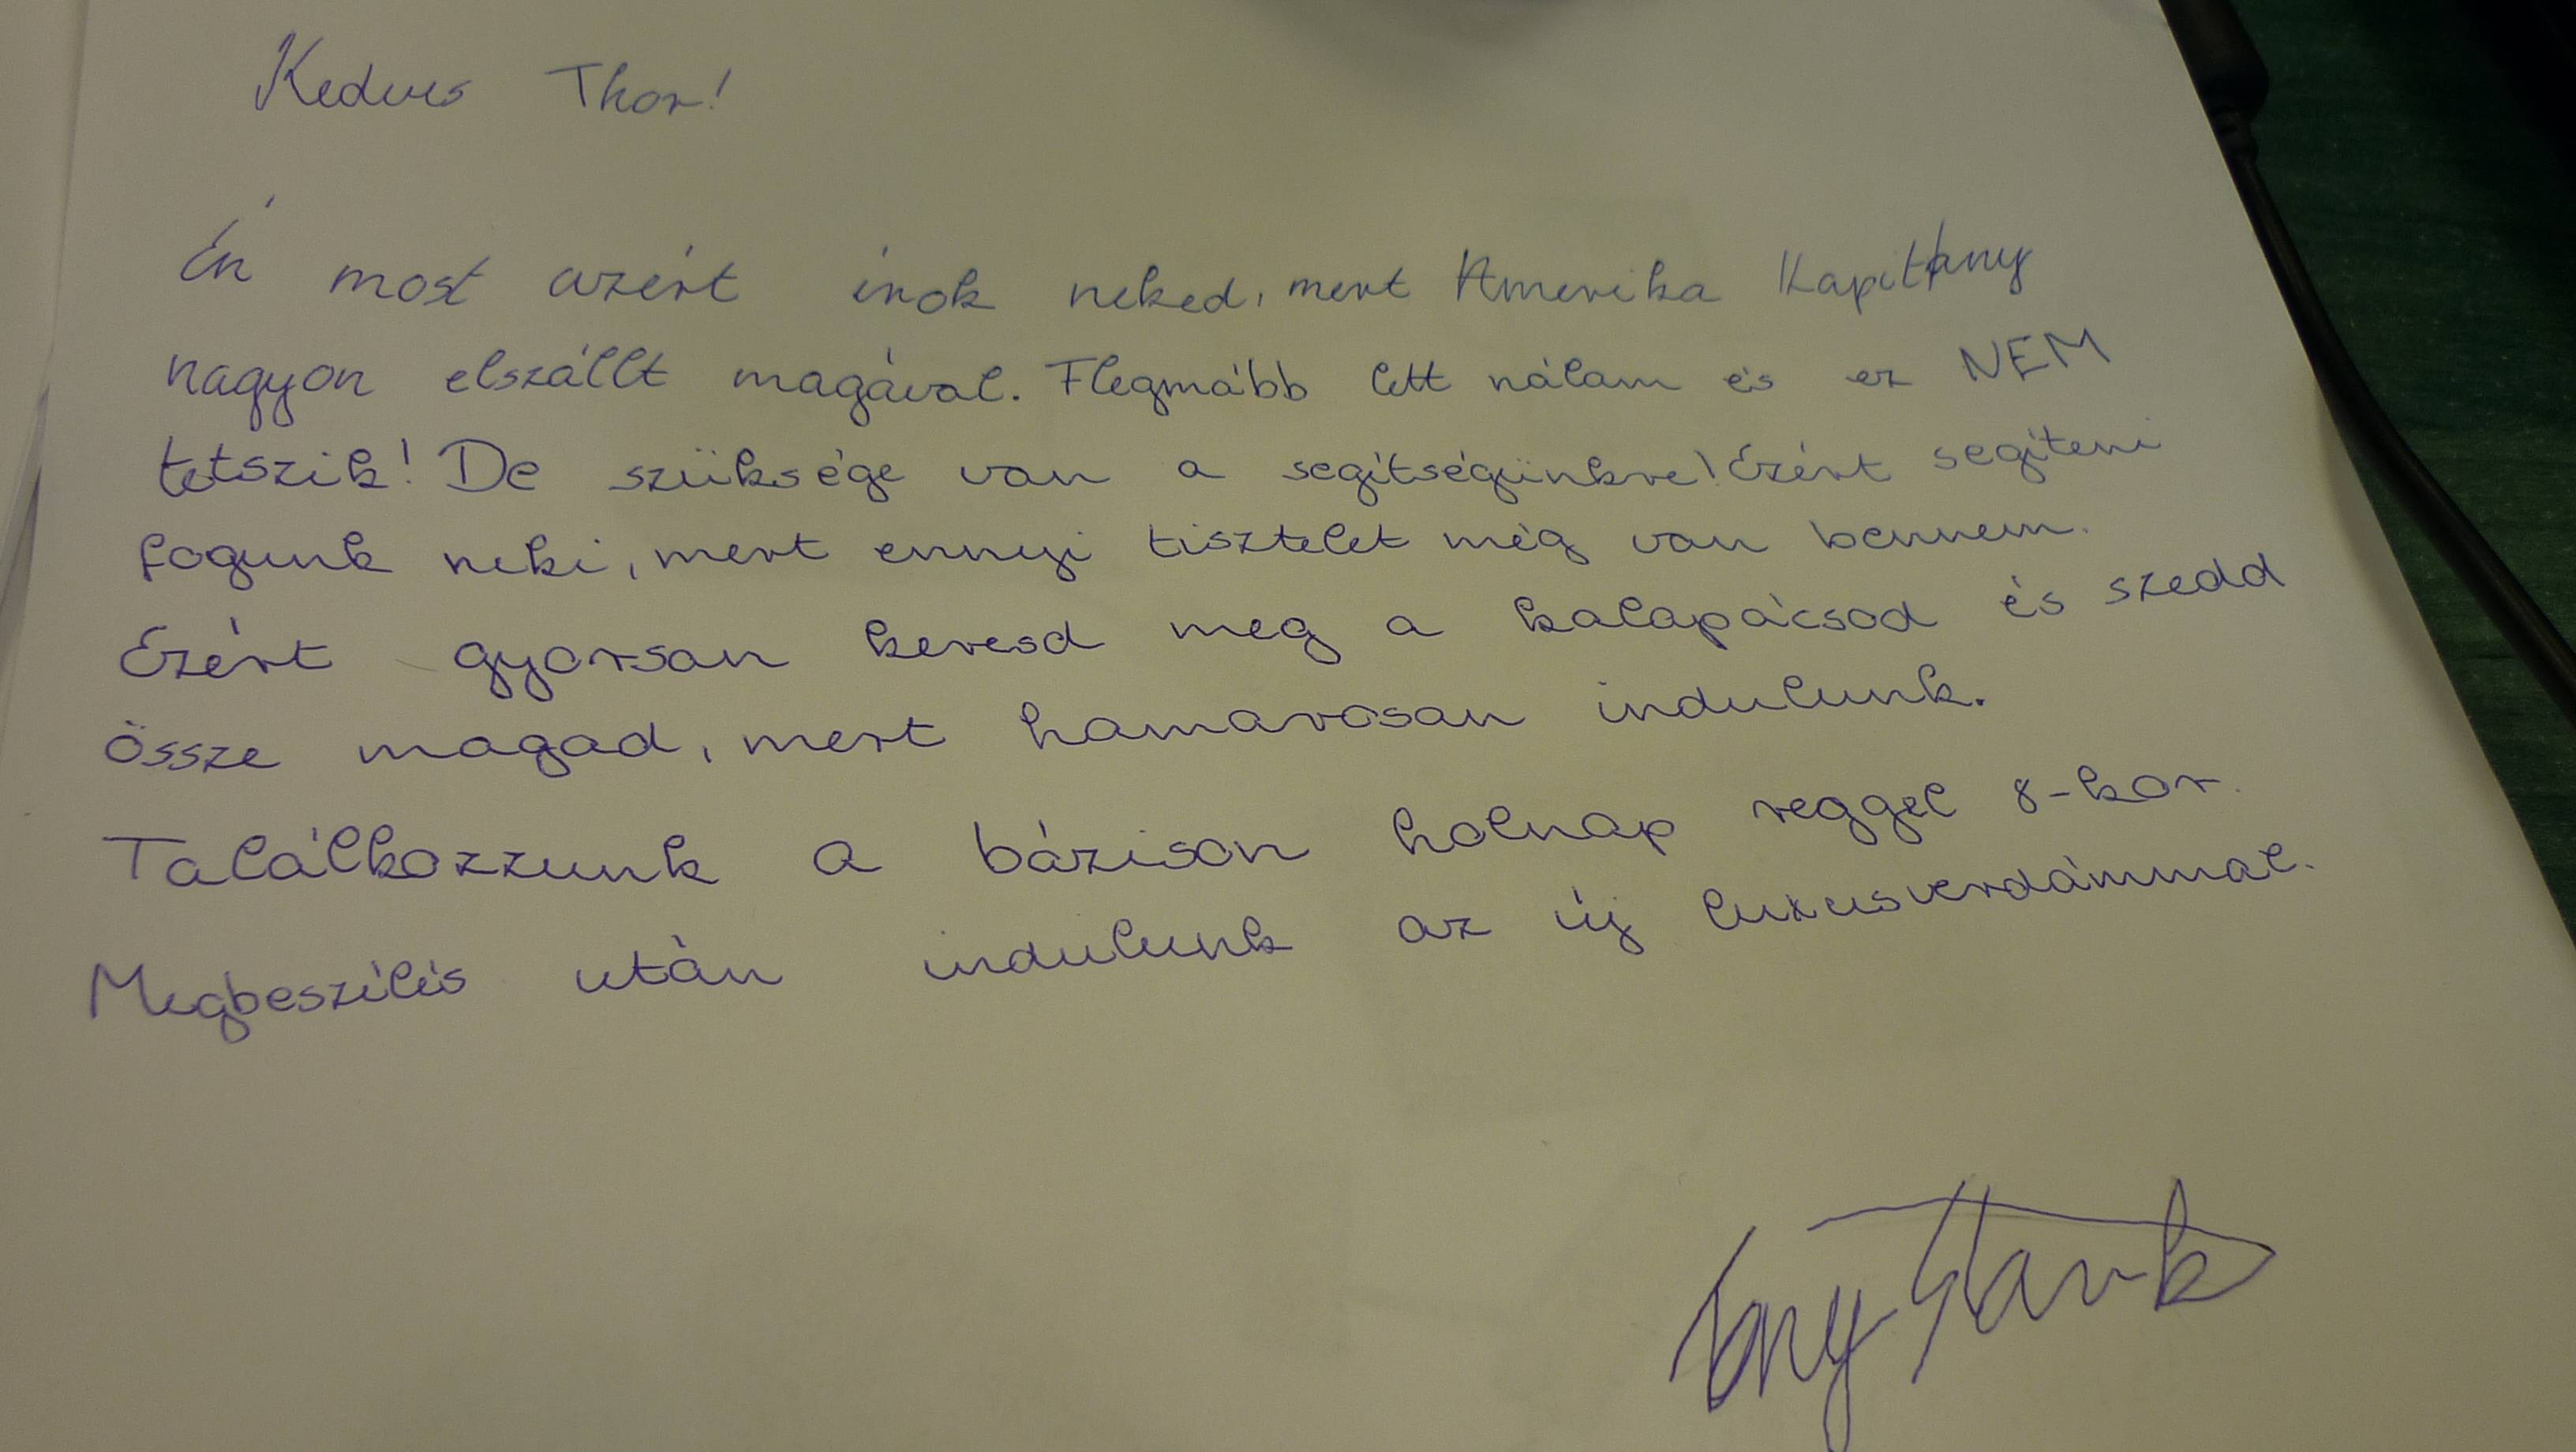 Kedves Thor!
Én most azért írok neked, mert Amerika Kapitány
nagyon elszállt magával. Flegmább lett nálam és ez NEM
tetszik! De szüksége van a segítségünkre! Ezért segíteni
fogunk neki, mert ennyi tisztelet még van bennem.
Ezért gyorsan keresd meg a kalapácsod és szedd
össze magad, mert hamarosan indulunk.
Találkozzunk a bázison holnap reggel 8-kor.
Megbeszélés után indulunk az új luxusverdámmal.
Tony Stark